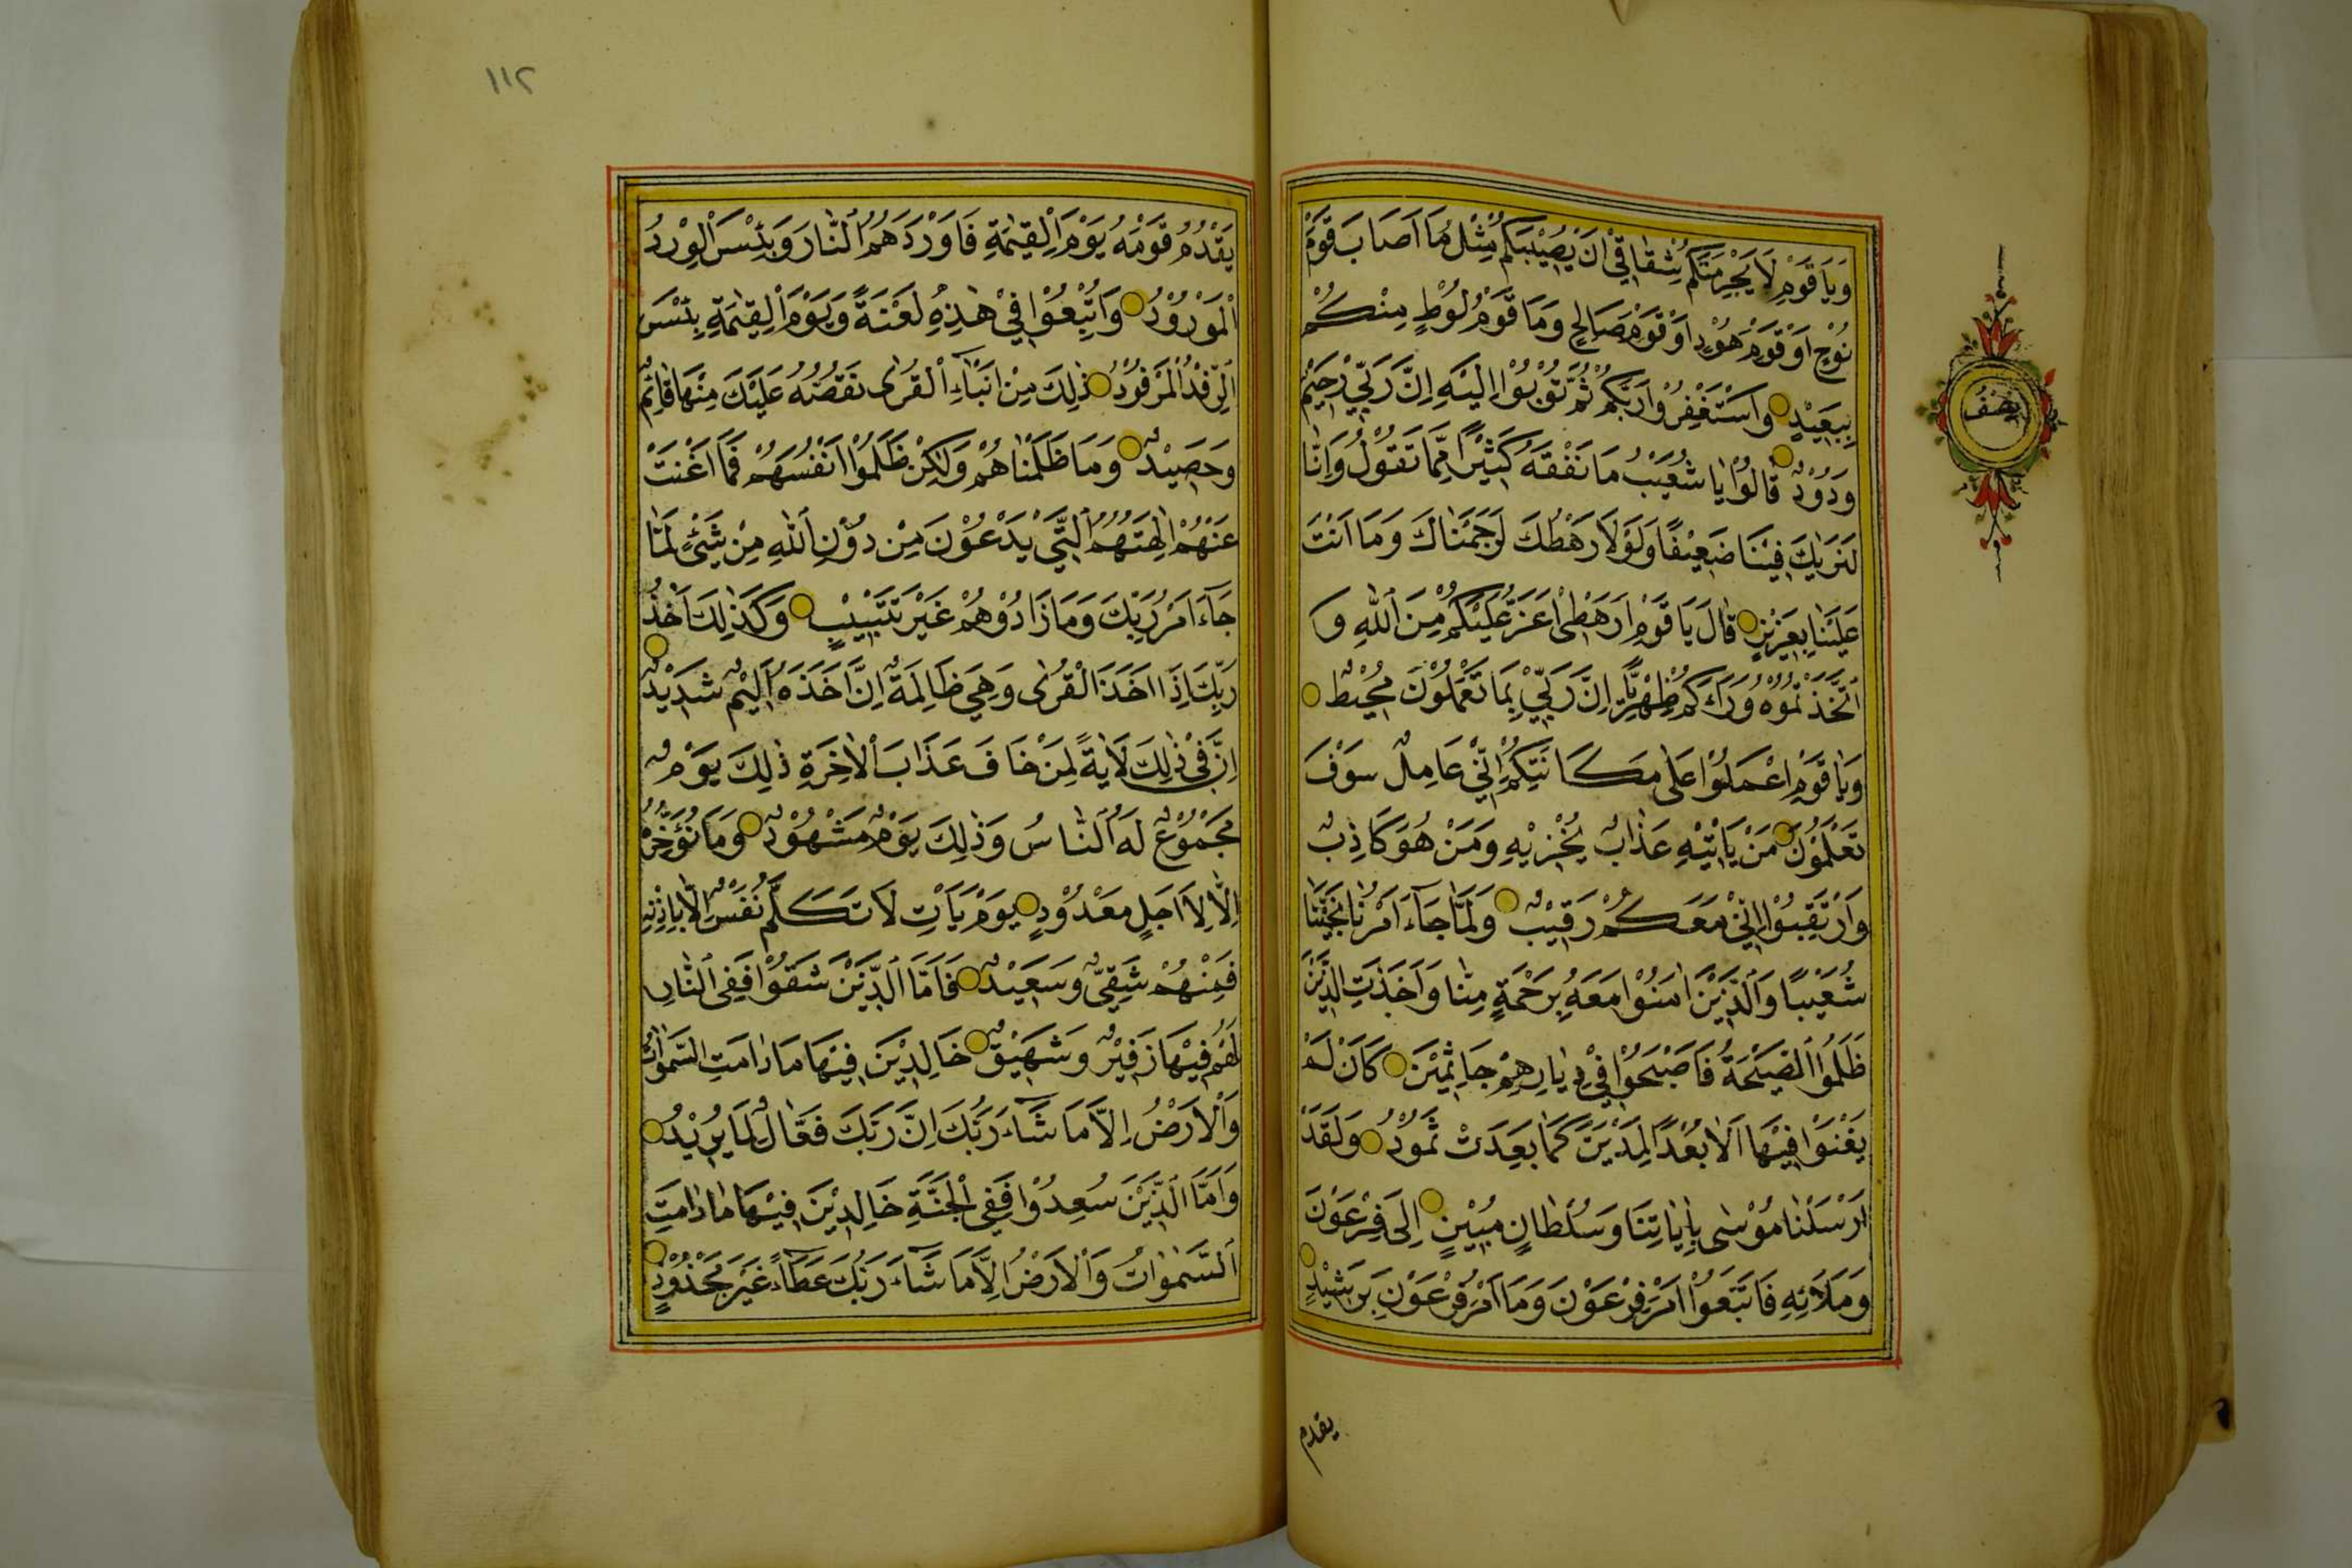 وَيَاقَوْمِ لَا يَجْرِمَنَّكُمْ شِقَاقِي أَنْ يُصِيبَكُمْ مِثْلُ مَا أَصَابَ قَوْمَ
نُوحٍ أَوْ قَوْمَ هُودٍ أَوْ قَوْمَ صَالِحٍ وَمَا قَوْمُ لُوطٍ مِنْكُمْ
بِبَعِيدٍ وَاسْتَغْفِرُوا رَبَّكُمْ ثُمَّ تُوبُوا إِلَيْهِ إِنَّ رَبِّي رَحِيمٌ
وَدُودٌ قَالُوا يَا شُعَيْبُ مَا نَفْقَهُ كَثِيرًا مِمَّا تَقُولُ وَإِنَّا
لَنَرٰيكَ فِينَا ضَعِيفًا وَلَوْلَا رَهْطُكَ لَرَجَمْنَاكَ وَمَا أَنْتَ
عَلَيْنَا بِعَزِيزٍ قَالَ يَا قَوْمِ أَرَهْطِي أَعَزُّ عَلَيْكُمْ مِنَ اللّٰهِ وَ
اتَّخَذْتُمُوهُ وَرَاءَكُمْ ظِهْرِيًّا إِنَّ رَبِّي بِمَا تَعْمَلُونَ مُحِيطٌ
وَيَا قَوْمِ اعْمَلُوا عَلٰى مَكَانَتِكُمْ إِنِّي عَامِلٌ سَوْفَ
تَعْلَمُونَ مَنْ يَأْتِيهِ عَذَابٌ يُخْزِيهِ وَمَنْ هُوَ كَاذِبٌ
وَارْتَقِبُوا إِنِّي مَعَكُمْ رَقِيبٌ وَلَمَّا جَاءَ أَمْرُنَا نَجَّيْنَا
شُعَيْبًا وَالَّذِينَ اٰمَنُوا مَعَهُ بِرَحْمَةٍ مِنَّا وَأَخَذَتِ الَّذِينَ
ظَلَمُوا الصَّيْحَةُ فَأَصْبَحُوا فِي دِيَارِهِمْ جَاثِمِينَ كَأَنْ لَمْ
يَغْنَوْا فِيهَا أَلَا بُعْدًا لِمَدْيَنَ كَمَا بَعِدَتْ ثَمُودُ وَلَقَدْ
أَرْسَلْنَا مُوسٰى بِاٰيَاتِنَا وَسُلْطَانٍ مُبِينٍ إِلٰى فِرْعَوْنَ
وَمَلَائِهِ فَاتَّبَعُوا أَمْرَ فِرْعَوْنَ وَمَا أَمْرُ فِرْعَوْنَ بِرَشِيدٍ
يقدم
نصف
١١٢
يَقْدُمُ قَوْمَهُ يَوْمَ الْقِيٰمَةِ فَأَوْرَدَهُمُ النَّارَ وَبِئْسَ الْوِرْدُ
الْمَوْرُودُ وَأُتْبِعُوا فِي هٰذِهِ لَعْنَةً وَيَوْمَ الْقِيٰمَةِ بِئْسَ
الرِّفْدُ الْمَرْفُودُ ذٰلِكَ مِنْ أَنْبَاءِ الْقُرٰى نَقُصُّهُ عَلَيْكَ مِنْهَا قَائِمٌ
وَحَصِيدٌ وَمَا ظَلَمْنَاهُمْ وَلٰكِنْ ظَلَمُوا أَنْفُسَهُمْ فَمَا أَغْنَتْ
عَنْهُمْ اٰلِهَتُهُمُ الَّتِي يَدْعُونَ مِنْ دُونِ اللّٰهِ مِنْ شَيْءٍ لَمَّا
جَاءَ أَمْرُ رَبِّكَ وَمَا زَادُوهُمْ غَيْرَ تَتْبِيبٍ وَكَذٰلِكَ أَخْذُ
رَبِّكَ إِذَا أَخَذَ الْقُرٰى وَهِيَ ظَالِمَةٌ إِنَّ أَخْذَهُ أَلِيمٌ شَدِيدٌ
إِنَّ فِي ذٰلِكَ لَاٰيَةً لِمَنْ خَافَ عَذَابَ الْاٰخِرَةِ ذٰلِكَ يَوْمٌ
مَجْمُوعٌ لَهُ النَّاسُ وَذٰلِكَ يَوْمٌ مَشْهُودٌ وَمَا نُؤَخِّرُهُ
إِلَّا لِأَجَلٍ مَعْدُودٍ يَوْمَ يَأْتِ لَا تَكَلَّمُ نَفْسٌ إِلَّا بِإِذْنِهِ
فَمِنْهُمْ شَقِيٌّ وَسَعِيدٌ فَأَمَّا الَّذِينَ شَقُوا فَفِي النَّارِ
لَهُمْ فِيهَا زَفِيرٌ وَشَهِيقٌ خَالِدِينَ فِيهَا مَا دَامَتِ السَّمٰوَاتُ
وَالْأَرْضُ إِلَّا مَا شَاءَ رَبُّكَ إِنَّ رَبَّكَ فَعَّالٌ لِمَا يُرِيدُ
وَأَمَّا الَّذِينَ سُعِدُوا فَفِي الْجَنَّةِ خَالِدِينَ فِيهَا مَا دَامَتِ
السَّمٰوَاتُ وَالْأَرْضُ إِلَّا مَا شَاءَ رَبُّكَ عَطَاءً غَيْرَ مَجْذُوذٍ